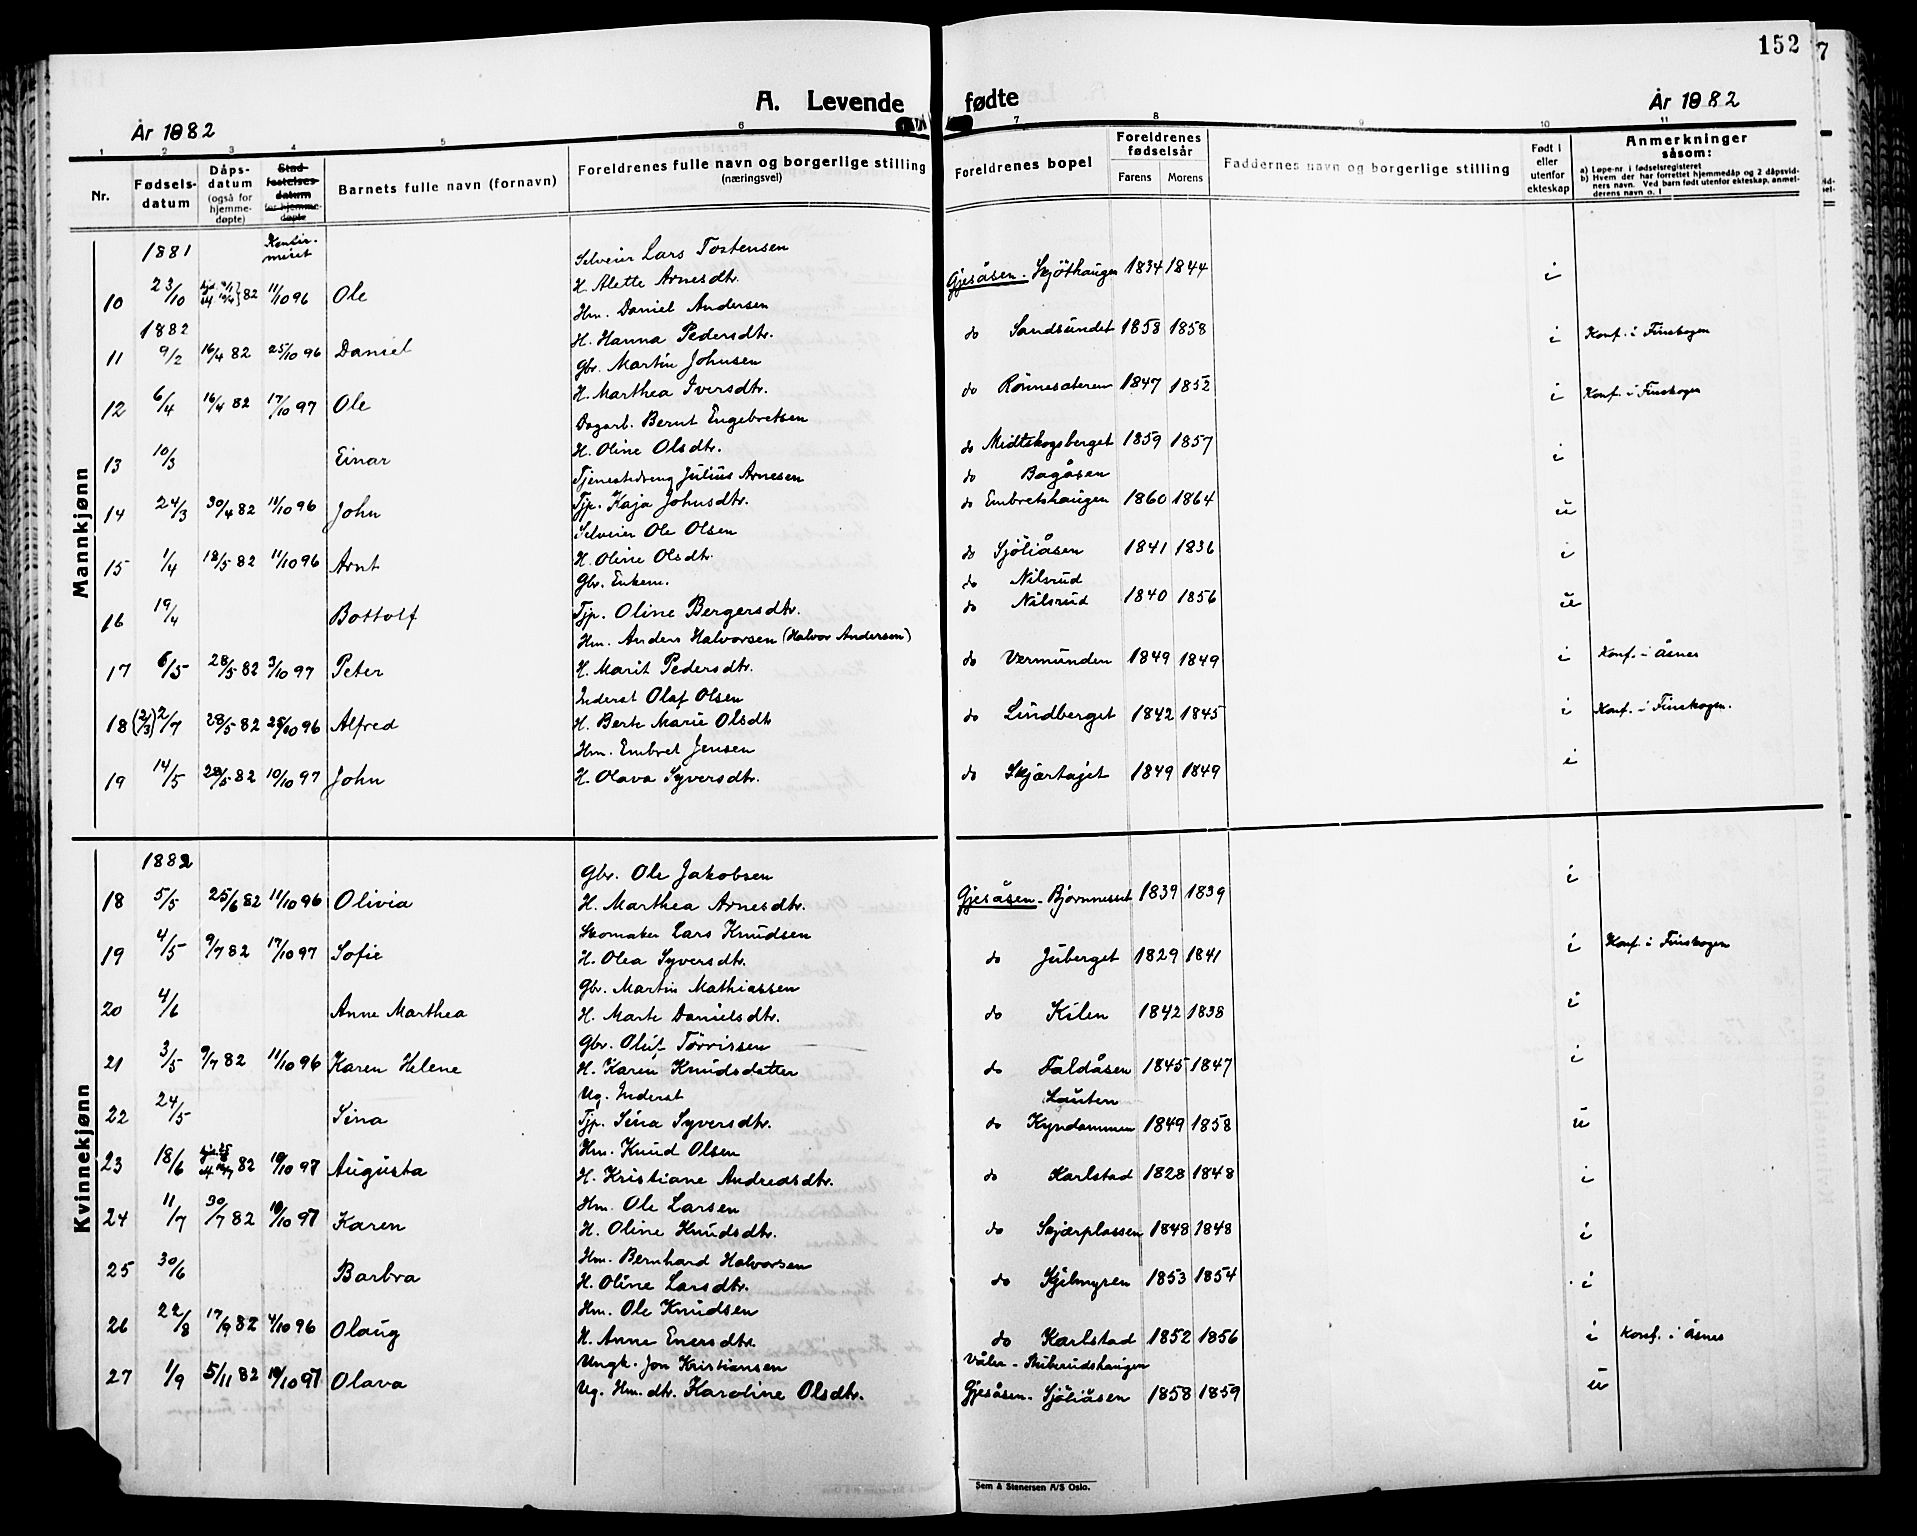 152
7
A. Levende fødte
År 1882
År 1882
1 2 3 4 5 6 7 8 9 10 11
Nr.
Fødsels-
datum
Dåps-
datum
(også for
hjemme-
døpte)
Stad-
festelses-
datum
for hjemme-
døpte
Barnets fulle navn (fornavn)
Foreldrenes fulle navn og borgerlige stilling
(næringsvei)
Foreldrenes bopel
Foreldrenes
fødselsår
Farens Morens
Faddernes navn og borgerlige stilling
Født i
eller
utenfor
ekteskap
Anmerkninger
såsom:
a) Løpe-nr. i fødselsregisteret
b) Hvem der har forrettet hjemmedåp og 2 dåpsvid-
ners navn. Ved barn født utenfor ekteskap, anmel-
derens navn o. l
Mannkjønn
1881 Konfir-
meret
Selveier Lars Tostensen
10 23/10 82 11/10 96 Ole H. Alette Arnesdtr. Gjesåsen - Skjøthaugen 1834 1844 i
1882
Hm. Daniel Andersen
11 9/2 16/4 82 25/10 96 Daniel H. Hanna Pedersdtr. do Sandsundet 1858 1858 i Konf. i Finskogen
Gbr. Martin Johnsen
12 6/4 16/4 82 17/10 97 Ole H. Marthea Iversdtr. do Rønnesæteren 1847 1852 i Konf. i Finskogen
Dagarb. Bernt Engebretsen
13 10/3 Einar H. Oline Olsdtr. do Midtskogsberget 1859 1857 i
Tjenestedreng Julius Arnesen do Bagåsen
14 24/3 30/4 82 11/10 96 John Tjp. Kaja Johnsdtr. do Embretshaugen 1860 1864 u
Selveier Ole Olsen
15 1/4 18/5 82 11/10 96 Arnt H. Oline Olsdtr. do Sjøliåsen 1841 1836 i
Gbr. Enkem. do Nilsrud
16 19/4 Bottolf Tjp. Oline Bergersdtr. do Nilsrud 1840 1856 u
Hm. Anders Halvorsen (Halvor Andersen)
17 6/5 28/5 82 3/10 97 Peter H. Marit Pedersdtr. do Vermunden 1849 1849 i Konf. i Åsnes
Inderst Olaf Olsen
18 (2/3) 2/7 28/5 82 25/10 96 Alfred H. Berte Marie Olsdt do Lindberget 1842 1845 i Konf. i Finskogen.
Hm. Embret Jensen
19 14/5 28/5 82 10/10 97 John H. Olava Syversdtr. do Skjærtajet 1849 1849 i
Kvinnekjønn
1882
Gbr. Ole Jakobsen
18 5/5 25/6 82 11/10 96 Olivia H. Marthea Arnesdtr. Gjesåsen - Bjørnnesset 1839 1839 i
Skomaker Lars Knudsen
19 4/5 9/7 82 17/10 97 Sofie H. Olea Syversdtr. do Juberget 1829 1841 i Konf. i Finskogen
Gbr. Martin Mathiassen
20 4/6 Anne Marthea H. Marte Danielsdtr. do Kilen 1842 1838 i
Gbr. Oluf Tørrissen
21 3/5 9/7 82 11/10 96 Karen Helene H. Karen Knudsdatter do Faldåsen 1845 1847 i
Ug. Inderst Lauten
22 24/5 Sina Tjp. Sina Syversdtr. do Kyndammen 1849 1858 u
Hm. Knud Olsen
23 18/6 82 10/10 97 Augusta H. Kristiane Andreasdtr. do Karlstad 1828 1848 i
Hm. Ole Larsen
24 11/7 30/7 82 10/10 97 Karen H. Oline Knudsdtr. do Skjærplassen 1848 1848 i
Hm. Bernhard Halvorsen
25 30/6 Barbra H. Oline Larsdtr. do Kjelmyren 1853 1854 i
Hm. Ole Knudsen
26 22/8 17/9 82 4/10 96 Olaug H. Anne Enersdtr. do Karlstad 1852 1856 i Konf. i Åsnes
Ungk. Jon Kristiansen Våler - Skiberudshaugen
27 1/9 5/11 82 10/10 97 Olava Ug. Hm. dtr. Karoline Olsdtr. Gjesåsen - Sjøliåsen 1858 1859 u
Sem & Stenersen A/S Oslo.